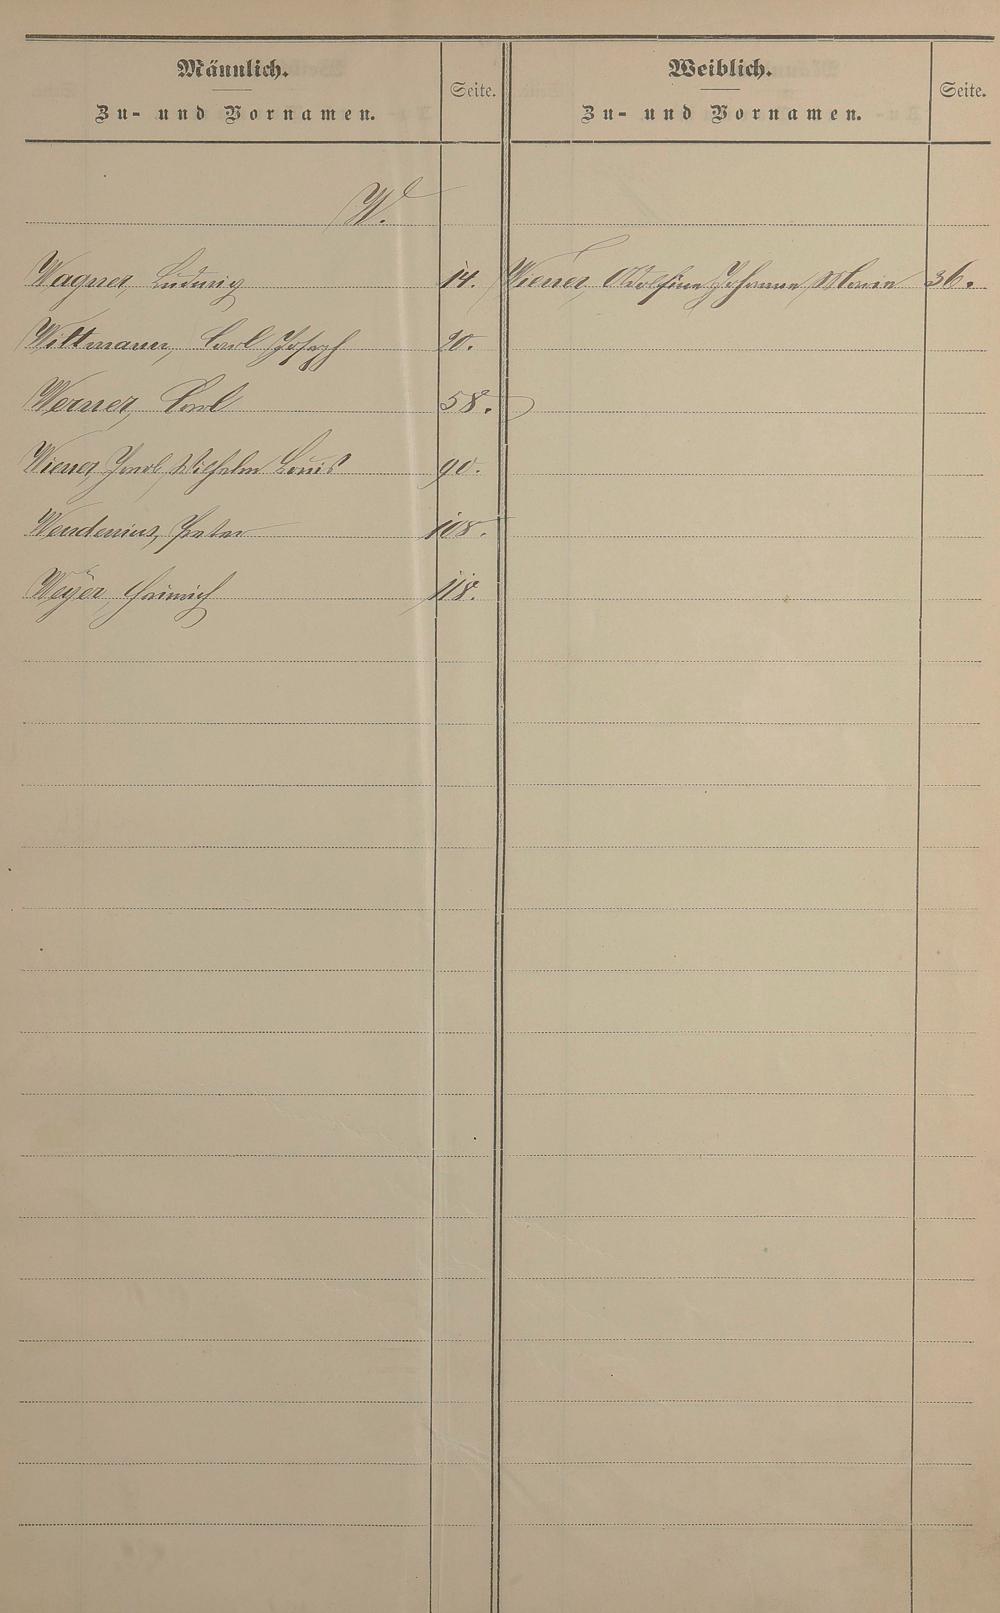 Männlich.
Zu- und Vornamen.
Seite.
Weiblich.
Zu- und Vornamen.
Seite.
W.
Wagner, Ludwig 14.
Wiener, Adolfine Johanne Marie 36.
Wittmann, Carl Joseph 20.
Werner, Carl 58.
Wiener, Jacob Wilhelm Louis 90.
Wendenius, Peter 108.
Weyer, Heinrich 118.